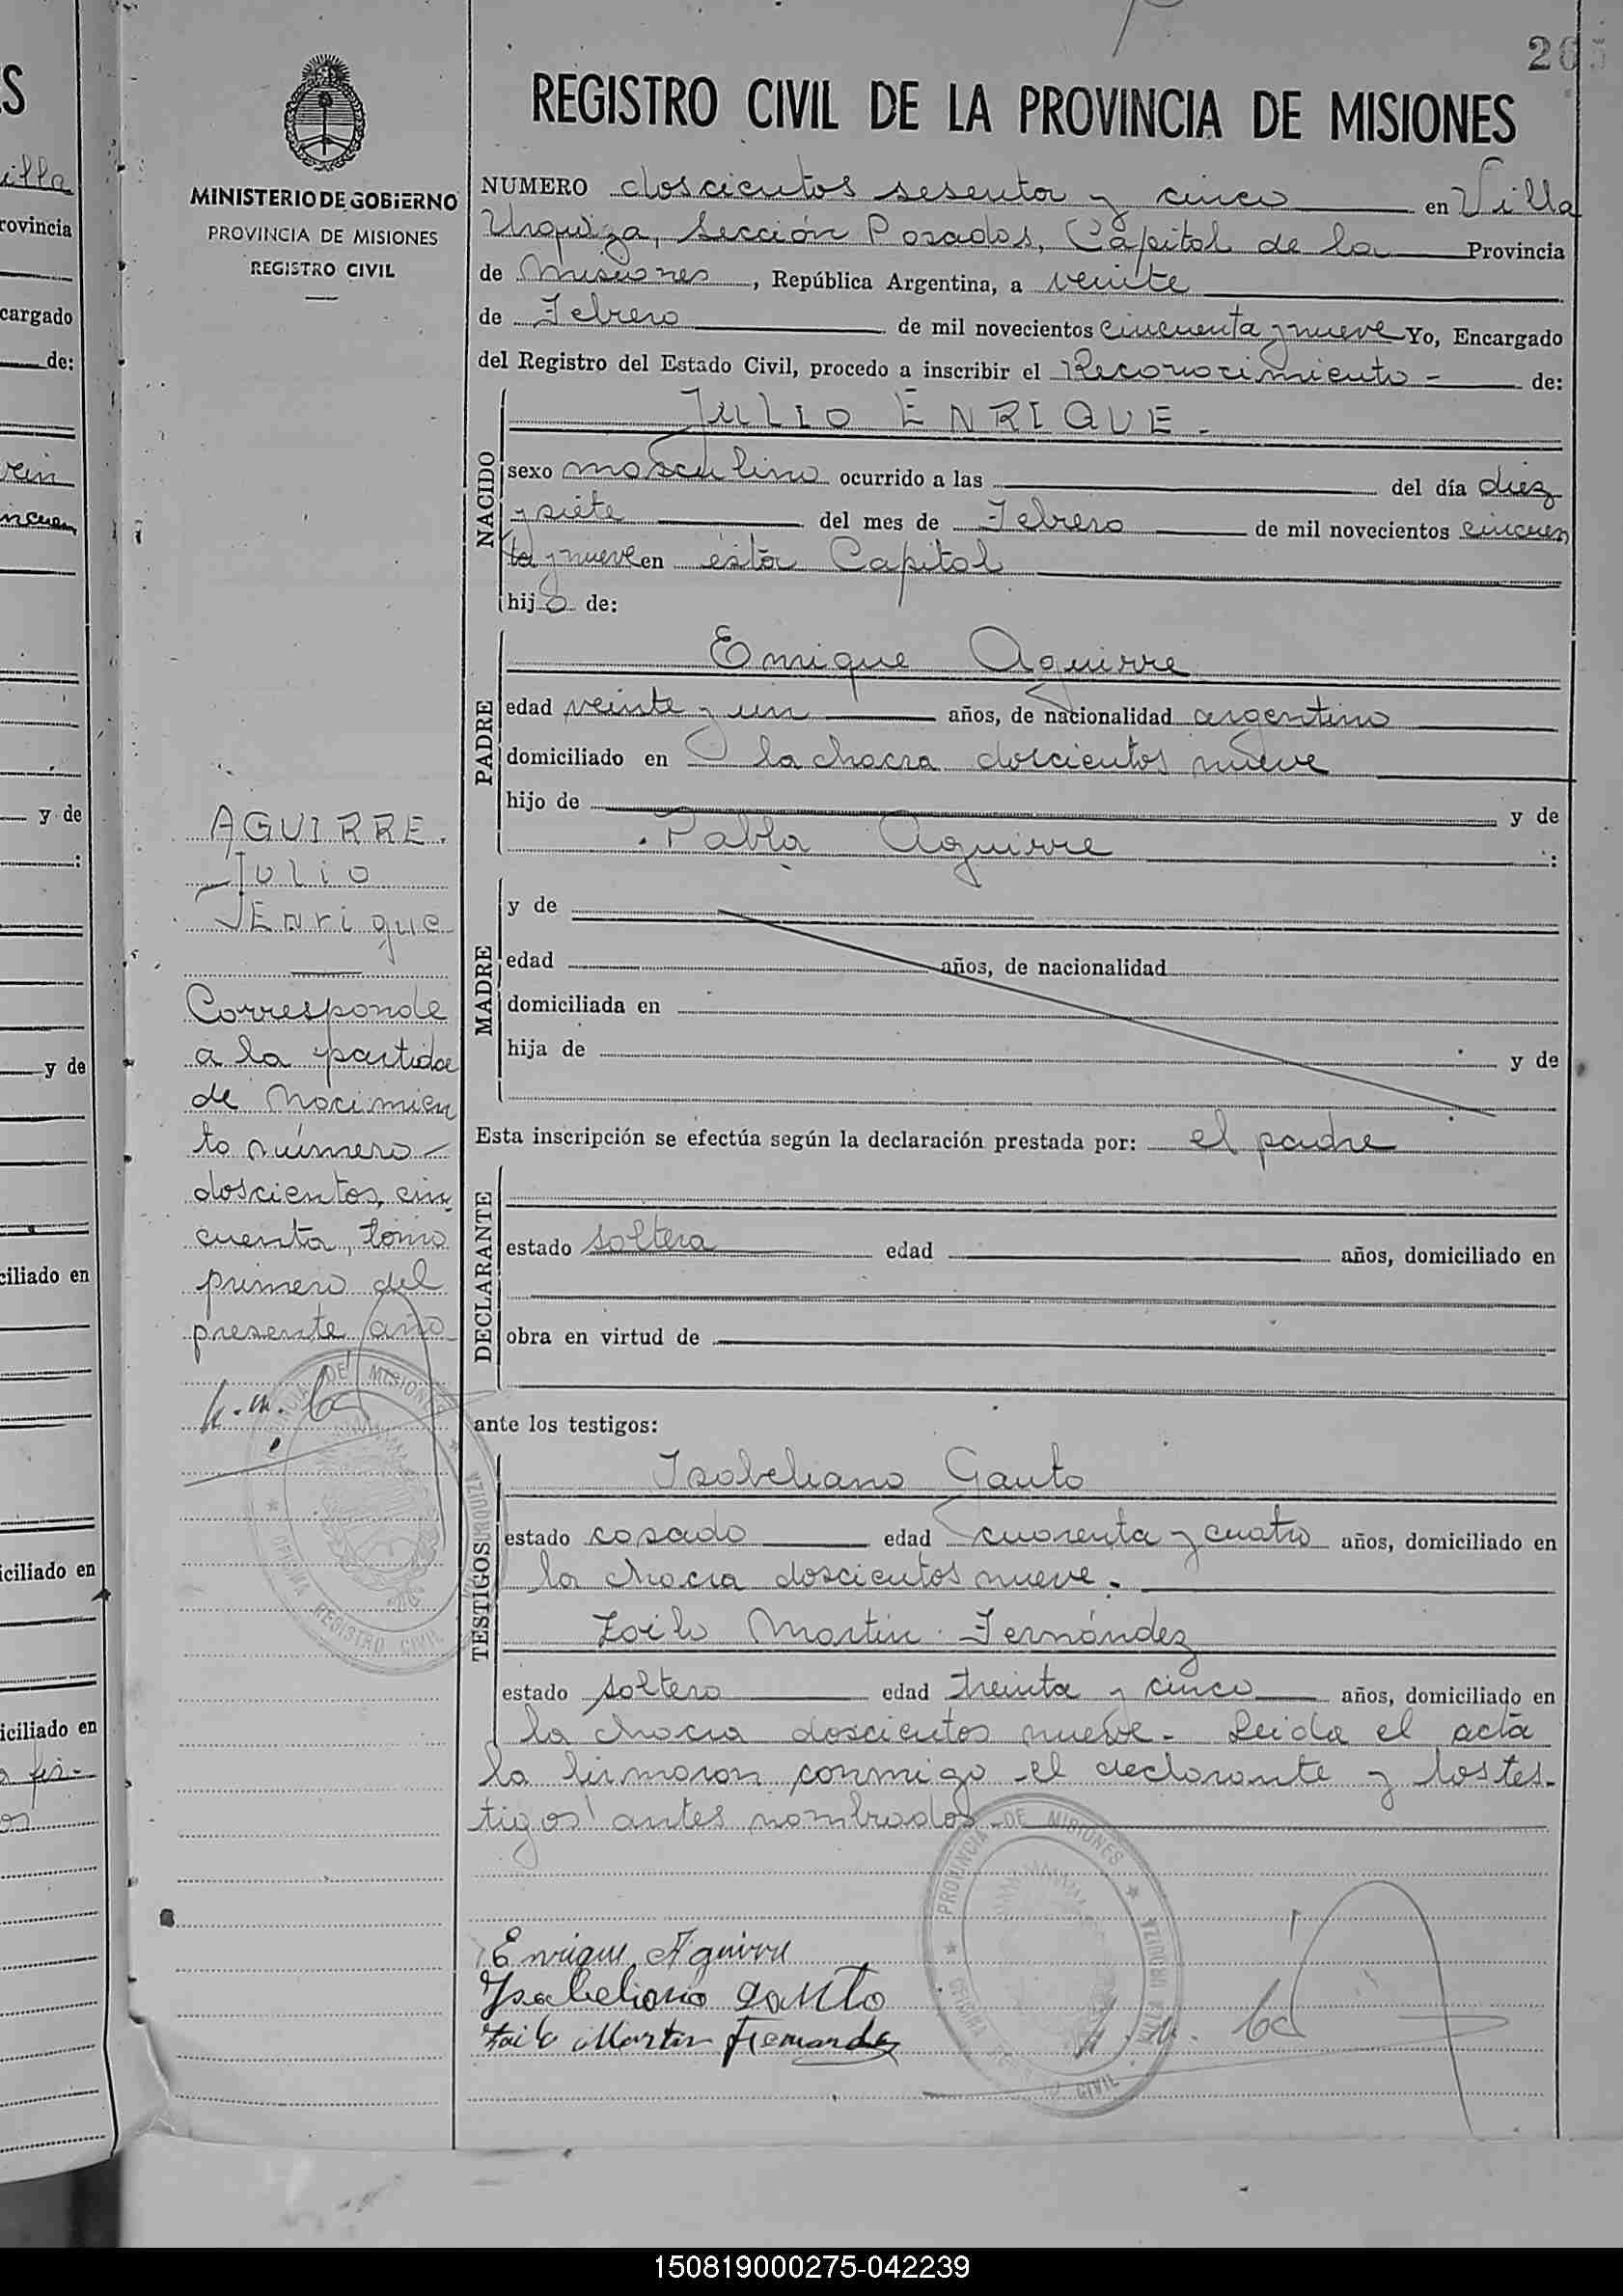 205
REGISTRO CIVIL DE LA PROVINCIA DE MISIONES
MINISTERIO DE GOBIERNO
PROVINCIA DE MISIONES
REGISTRO CIVIL
NUMERO doscientos sesenta y cinco en Villa
Urquiza, Sección Posadas, Capital de la Provincia
de Misiones, República Argentina, a veinte
de Febrero de mil novecientos cincuenta y nueve Yo, Encargado
del Registro del Estado Civil, procedo a inscribir el Reconocimiento - de:
JULIO ENRIQUE.-
NACIDO
sexo masculino ocurrido a las del día diez
y siete del mes de Febrero de mil novecientos cincuen
ta y nueve en ésta Capital
hijo de:
PADRE
Enrique Aguirre
edad veinte y un años, de nacionalidad argentino
domiciliado en la chacra doscientos nueve
hijo de y de
Pabla Aguirre :
MADRE
y de
edad años, de nacionalidad
domiciliada en
hija de y de
Esta inscripción se efectúa según la declaración prestada por: el padre
DECLARANTE
estado soltera edad años, domiciliado en
obra en virtud de
ante los testigos:
TESTIGOS
Isabeliano Gauto
estado casado edad cuarenta y cuatro años, domiciliado en
la chacra doscientos nueve.
Zoilo Martin Fernández
estado soltero edad treinta y cinco años, domiciliado en
la chacra doscientos nueve.- Leida el acta
la firmaron conmigo el declarante y los tes-
tigos antes nombrados.
Enrique Aguirre
Isabeliano Gauto
Zoilo Martin Fernandez
PROVINCIA DE MISIONES
OFICINA REGISTRO CIVIL
VILLA URQUIZA
AGUIRRE.
Julio
Enrique
Corresponde
a la partida
de Nacimien
to número
doscientos, cin
cuenta, tomo
primero del
presente año
DE MISIONES
URQUIZA
OFICINA REGISTRO CIVIL
illa
rovincia
cargado
de:
y de
y de
ciliado en
iciliado en
iciliado en
150819000275-042239